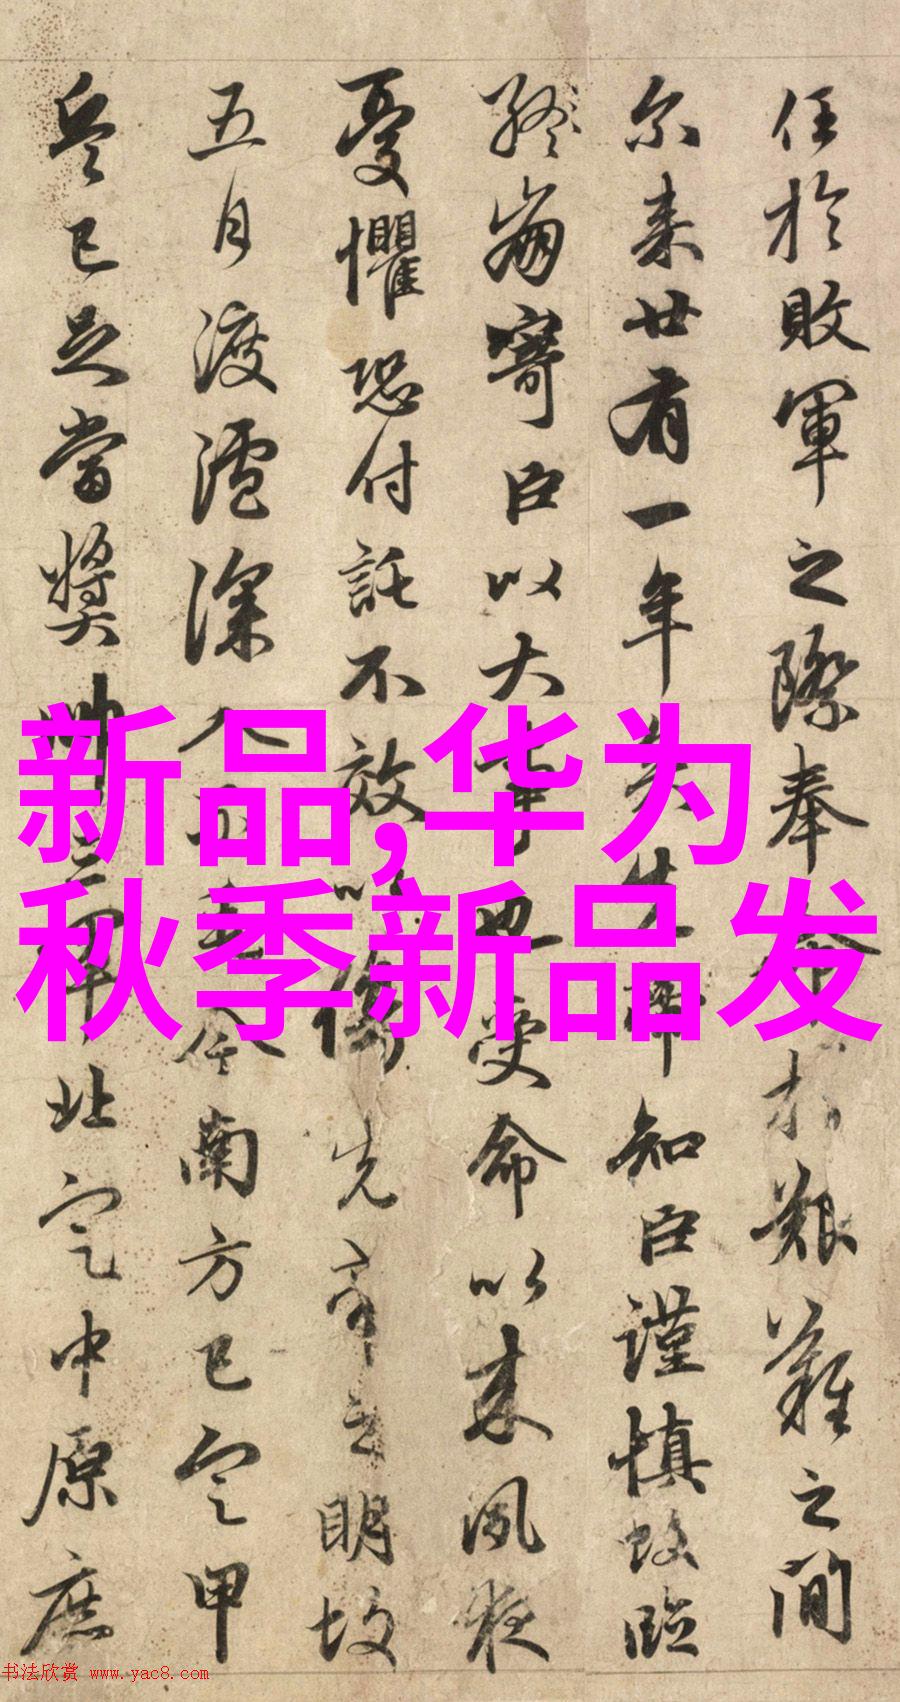 任於敗軍之際奉命於艱難之間
尓来廿有一年矣先帝知臣謹慎故臨
崩寄臣以大事也受命以来夙夜
憂懼恐付託不效以傷先帝之明故
五月渡瀘深入不毛今南方已定甲
兵已足當獎帥三軍北定中原庶
新品,华为
秋季新品发
书法欣赏 www.yac8.com